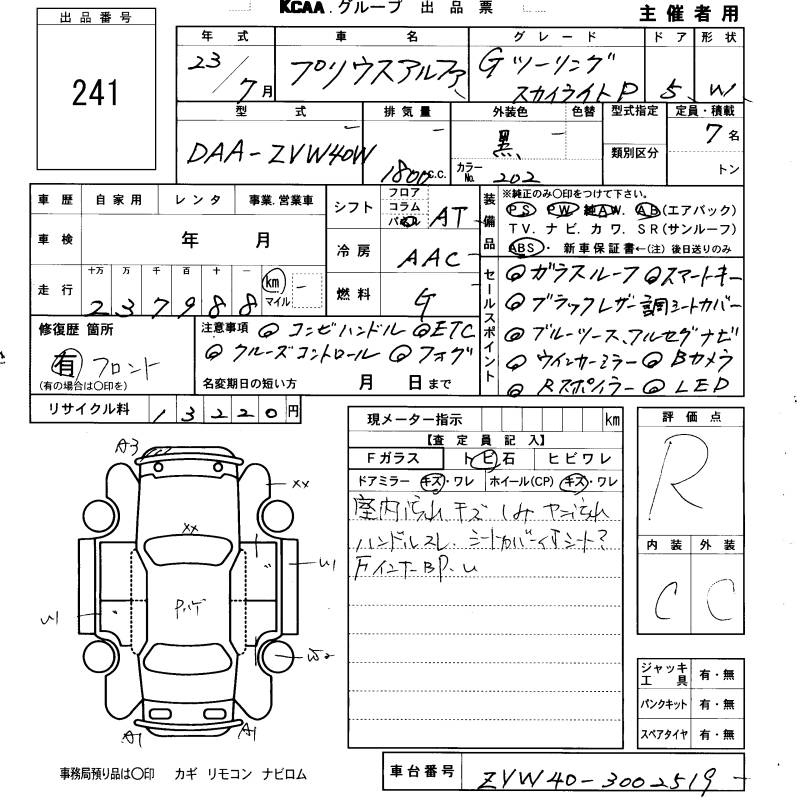 KCAA.グループ 出品票
主催者用
出品番号
241
年式 車名 グレード ドア 形状
23/7月 プリウスアルファ Gツーリング スカイライトP 5 W
型式 排気量 外装色 色替 型式指定 定員・積載
DAA-ZVW40W 1800c.c. 黒 7名
カラーNo. 202 類別区分 トン
車歴 自家用 レンタ 事業.営業車
車検 年 月
走行 十万 万 千 百 十 一 km マイル
237988
シフト フロア コラム パネル AT
冷房 AAC
燃料 G
装備品
※純正のみ〇印をつけて下さい。
PS PW 純AW. AB(エアバック)
TV.ナビ.カワ.SR(サンルーフ)
ABS・新車保証書←(注)後日送りのみ
セールスポイント
◎ガラスルーフ ◎スマートキー
◎ブラックレザー調シートカバー
◎ブルーツース、アルセグナビ
◎ウインカーミラー ◎Bカメラ
◎Rスポイラー ◎LED
修復歴 箇所
有 フロント
(有の場合は〇印を)
注意事項 ◎コンビハンドル ◎ETC
◎クルーズコントロール ◎フォグ
名変期日の短い方 月 日まで
リサイクル料 13220円
現メーター指示 km
【査定員記入】
Fガラス トビ石 ヒビワレ
ドアミラー キズ・ワレ ホイール(CP) キズ・ワレ
室内汚れ キズ シミ ヤニ汚れ
ハンドルスレ. シートカバー付シート?
FインナーBP.U
評価点
R
内装 外装
C C
ジャッキ工具 有・無
パンクキット 有・無
スペアタイヤ 有・無
A3
XX
XX
U1
U1
W2
A1
A1
事務局預り品は〇印 カギ リモコン ナビロム
車台番号 ZVW40-3002519